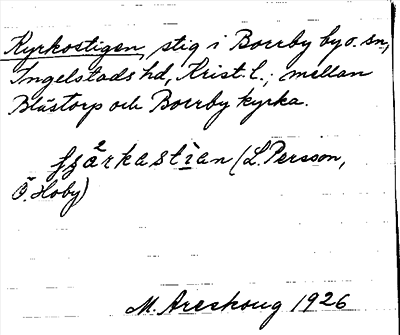 Kyrkostigen, stig i Borrby by o. sn,
Ingelstads hd, Krist. l.; mellan
Blästorp och Borrby kyrka.
(L. Persson,
Ö. Hoby)
M. Areskoug 1926